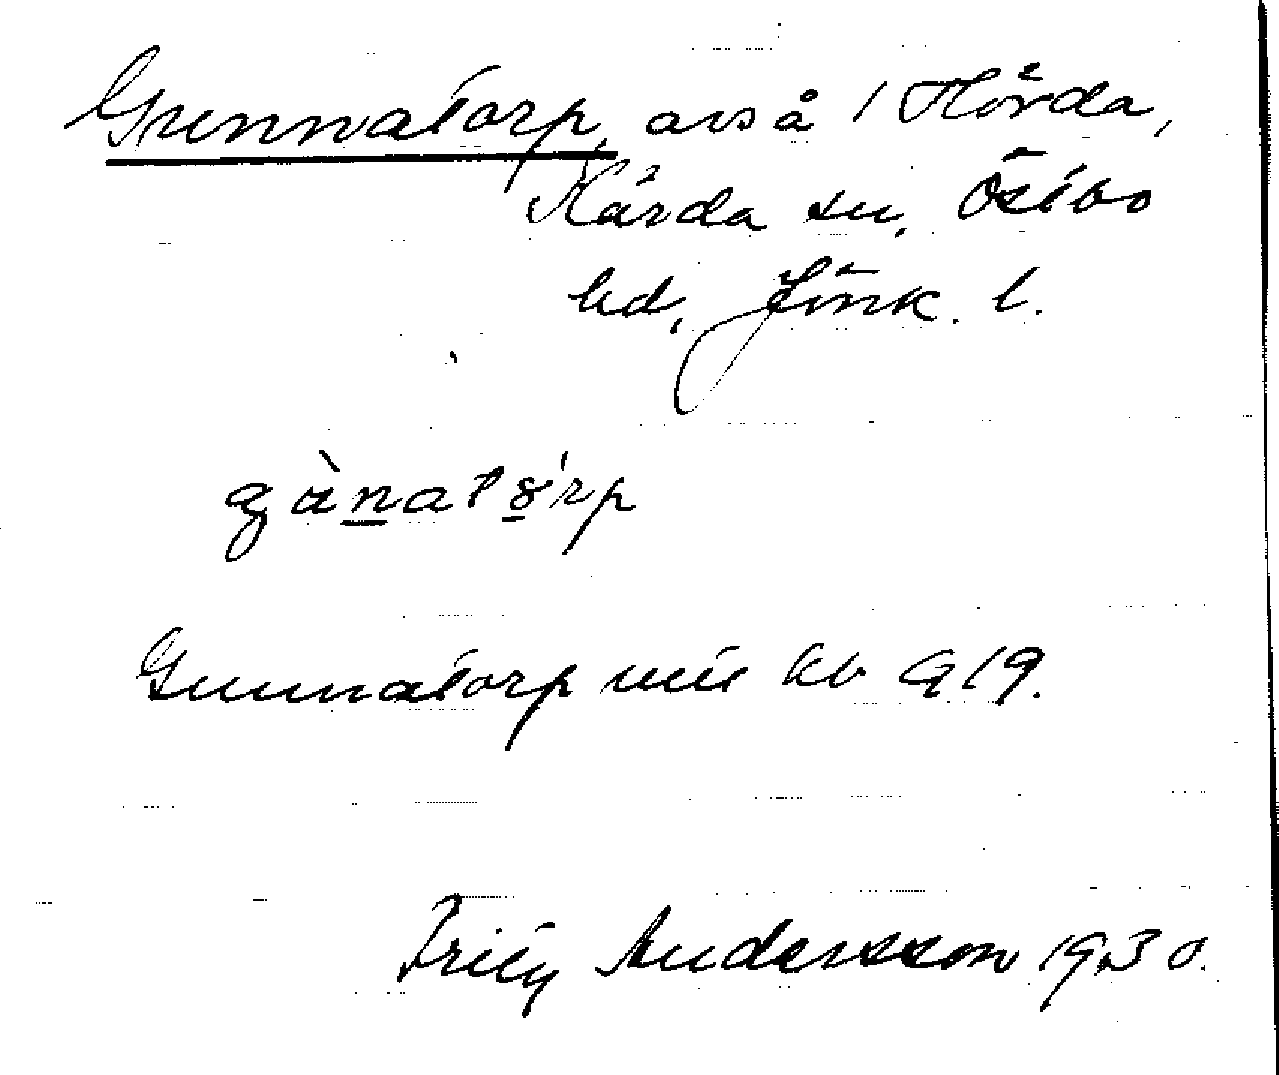 Gunnatorp, avs å 1 Hörda,
Kärda sn, Östbo
hd, Jönk. l.
gànatórp
Gunnatorp kb 919.
Andersson 1930.